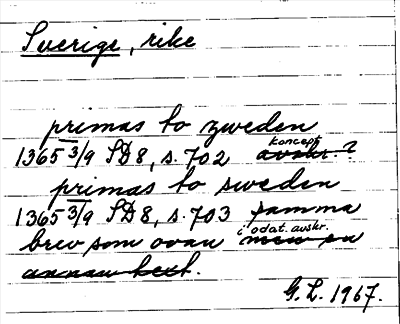 Sverige, rike
primas to zweden
1365 3/9 SD8, s. 702 avskr. koncept ?
primas to sweden
1365 3/9 SD8, s. 703 samma
brev som ovan men en i odat. avskr.
annan text.
G. L. 1967.